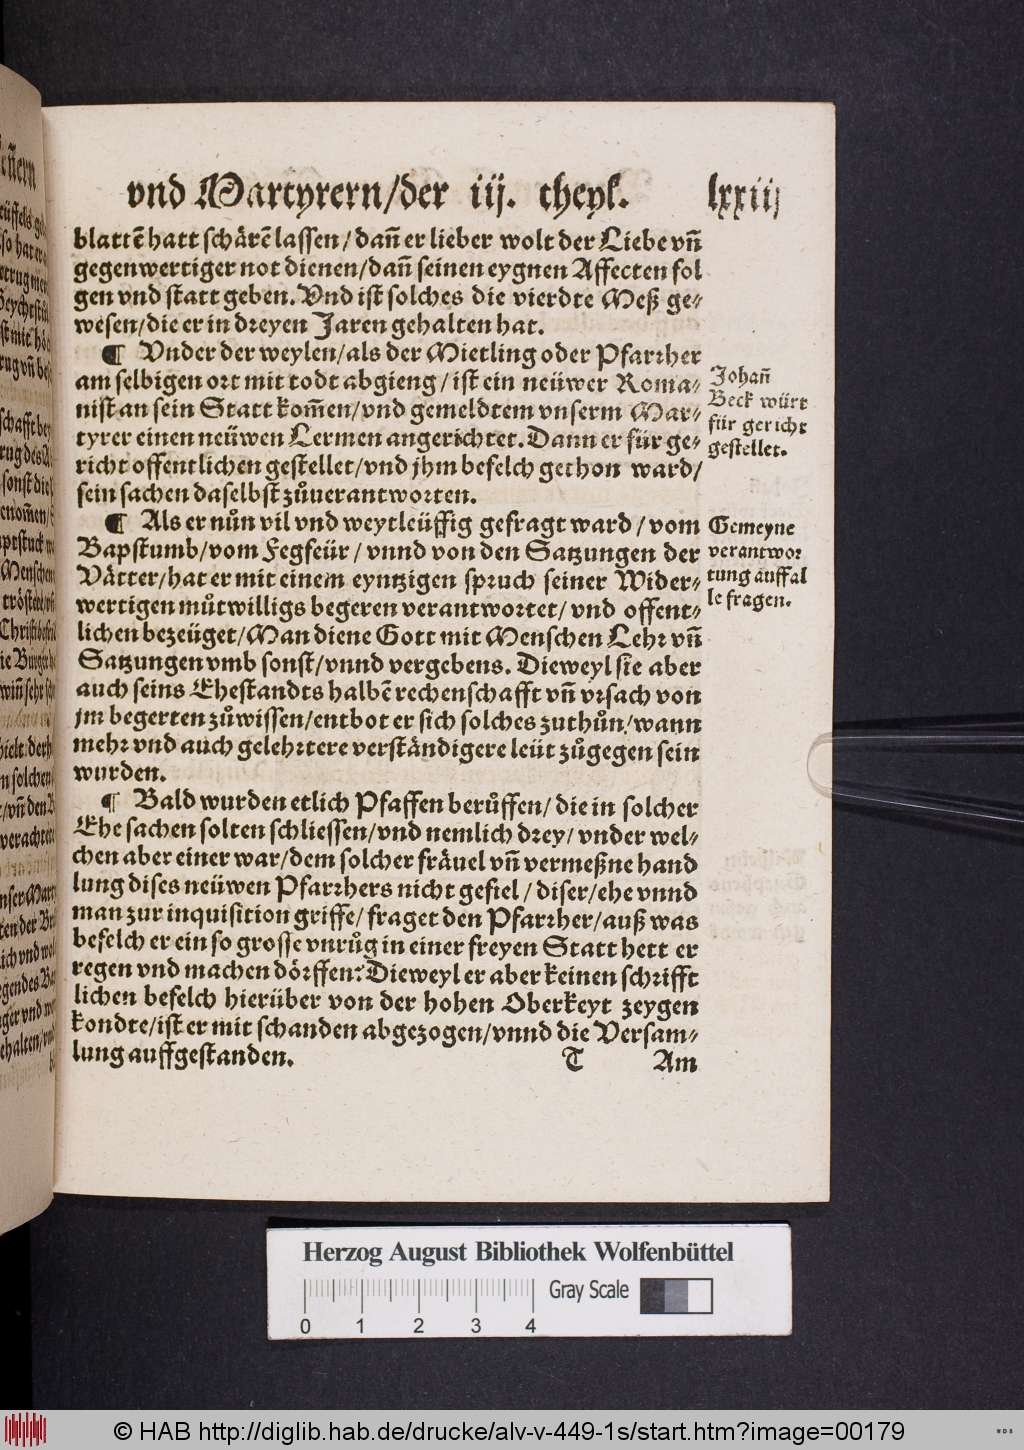 vnd Martyrern/der iij. theyl. lxxiij
blattē hatt schärē lassen/dañ er lieber wolt der Liebe vñ
gegenwertiger not dienen/dañ seinen eygnen Affecten fol
gen vnd statt geben. Vnd ist solches die vierdte Meß ge-
wesen/die er in dreyen Jaren gehalten hat.
¶ Vnder der weylen/als der Mietling oder Pfarrher
am selbigen ort mit todt abgieng/ist ein neüwer Roma-
nist an sein Statt kom̄en/vnd gemeldtem vnserm Mar-
tyrer einen neüwen Lermen angerichtet. Dann er für ge-
richt offentlichen gestellet/vnd jhm befelch gethon ward/
sein sachen daselbst zůuerantworten.
Johañ
Beck würt
für gericht
gestellet.
¶ Als er nůn vil vnd weytleüffig gefragt ward/vom
Bapstumb/vom Fegfeür/vnnd von den Satzungen der
Vätter/hat er mit einem eyntzigen spruch seiner Wider-
wertigen můtwilligs begeren verantwortet/vnd offent-
lichen bezeüget/Man diene Gott mit Menschen Lehr vñ
Satzungen vmb sonst/vnnd vergebens. Dieweyl sie aber
auch seins Ehestandts halbē rechenschafft vñ vrsach von
jm begerten zůwissen/entbot er sich solches zuthůn/wann
mehr vnd auch gelehrtere verständigere leüt zůgegen sein
wurden.
Gemeyne
verantwor
tung auff al
le fragen.
¶ Bald wurden etlich Pfaffen berůffen/die in solcher
Ehe sachen solten schliessen/vnd nemlich drey/vnder wel-
chen aber einer war/dem solcher fräuel vñ vermeßne hand
lung dises neüwen Pfarrhers nicht gefiel/diser/ehe vnnd
man zur inquisition griffe/fraget den Pfarrher/auß was
befelch er ein so grosse vnrůg in einer freyen Statt hett er
regen vnd machen dörffen? Dieweyl er aber keinen schrifft
lichen befelch hierüber von der hohen Oberkeyt zeygen
kondte/ist er mit schanden abgezogen/vnnd die Versam-
lung auffgestanden.
T Am
Herzog August Bibliothek Wolfenbüttel
0 1 2 3 4 Gray Scale
© HAB http://diglib.hab.de/drucke/alv-v-449-1s/start.htm?image=00179